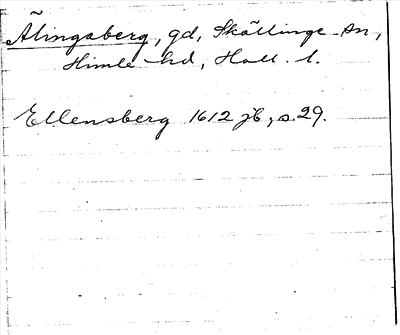 Älingsberg, gd, Skällinge sn,
Himle hd, Hall. l.
Ellensberg 1612 jb, s. 29.